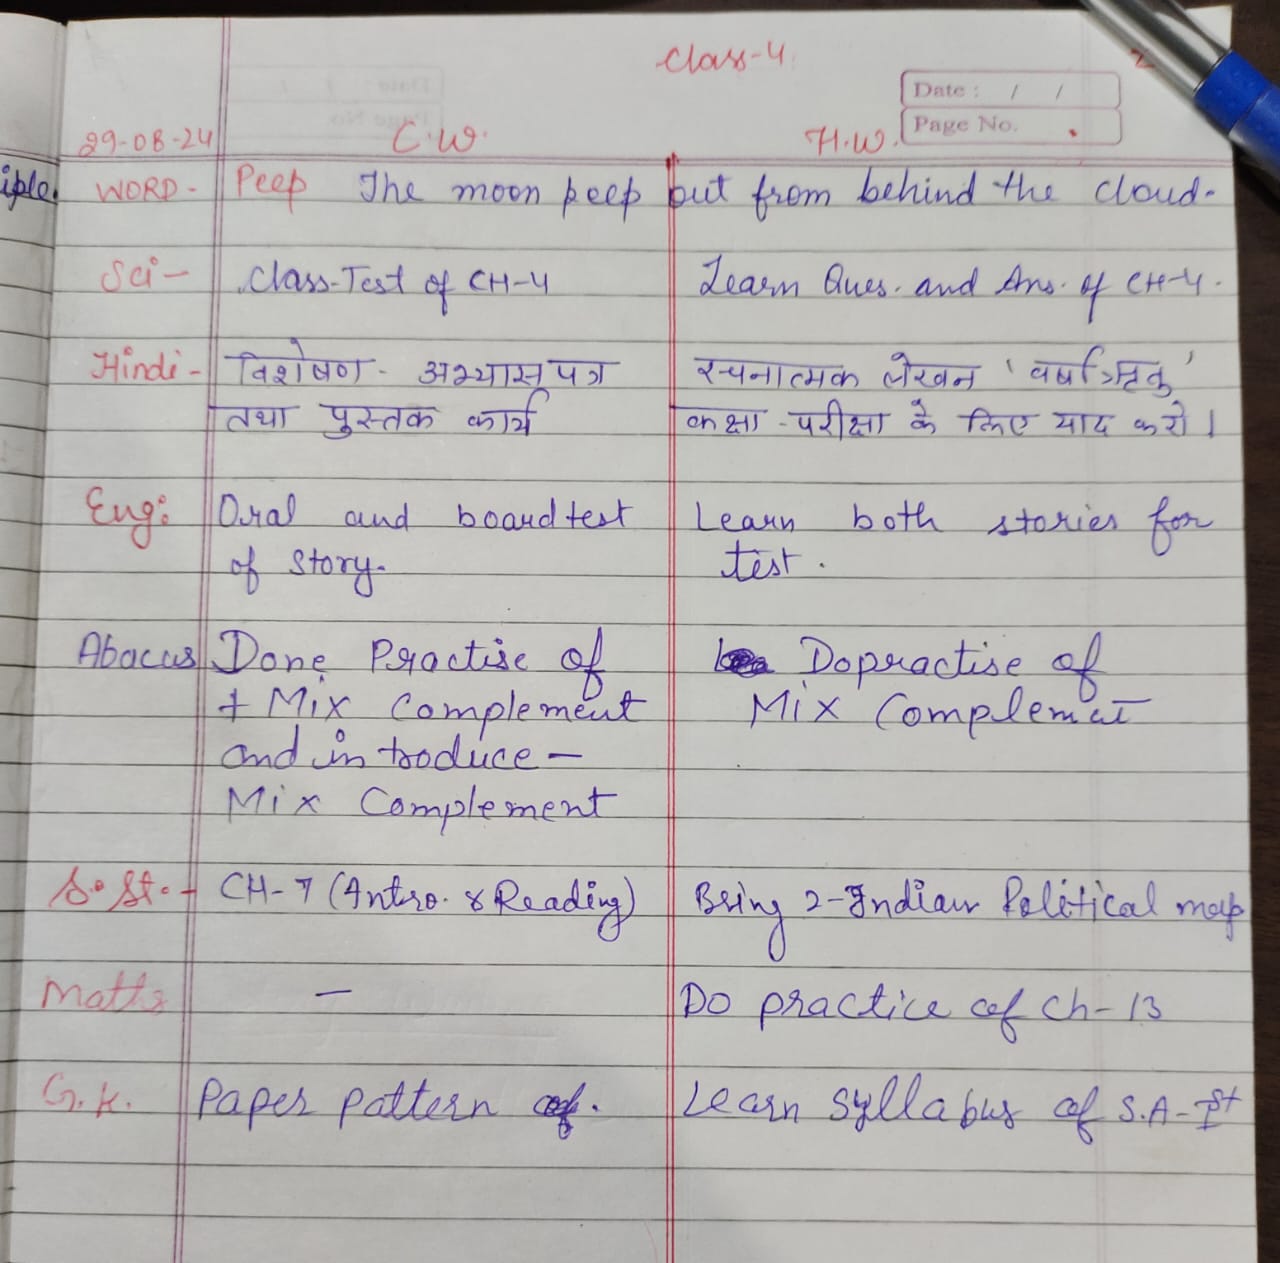 Class-4
Date : / /
Page No.
29-08-24 C.W. H.W.
iple.
WORD - Peep The moon peep out from behind the cloud.
Sci - Class-Test of CH-4 Learn Ques. and Ans. of CH-4.
Hindi - विशेषण - अभ्यास पत्र रचनात्मक लेखन 'वर्षा ऋतु'
तथा पुस्तक कार्य कक्षा - परीक्षा के लिए याद करो।
Eng: Oral and board test Learn both stories for
of story. test.
Abacus Done Practise of Do practise of
+ Mix Complement Mix Complemet
and introduce -
Mix Complement
S.St. - CH-7 (Intro. & Reading) Bring 2-Indian Political map
Maths - Do practice of Ch-13
G.K. Paper pattern of. Learn syllabus of S.A-Ist